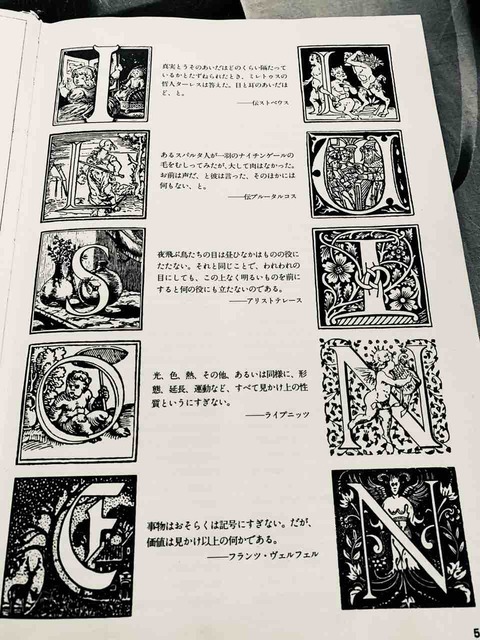 I
L
真実とうそのあいだはどのくらい隔たって
いるかとたずねられたとき、ミレトゥスの
哲人ターレスは答えた。目と耳のあいだほ
ど、と。
――伝ストベウス
I
U
あるスパルタ人が一羽のナイチンゲールの
毛をむしってみたが、大して肉はなかった。
お前は声だ、と彼は言った、そのほかには
何もない、と。
――伝プルータルコス
S
I
夜飛ぶ鳥たちの目は昼ひなかはものの役に
たたない。それと同じことで、われわれの
目にしても、この上なく明るいものを前に
すると何の役にも立たないのである。
――アリストテレース
O
N
光、色、熱、その他、あるいは同様に、形
態、延長、運動など、すべて見かけ上の性
質というにすぎない。
――ライプニッツ
E
N
事物はおそらくは記号にすぎない。だが、
価値は見かけ以上の何かである。
――フランツ・ヴェルフェル
5